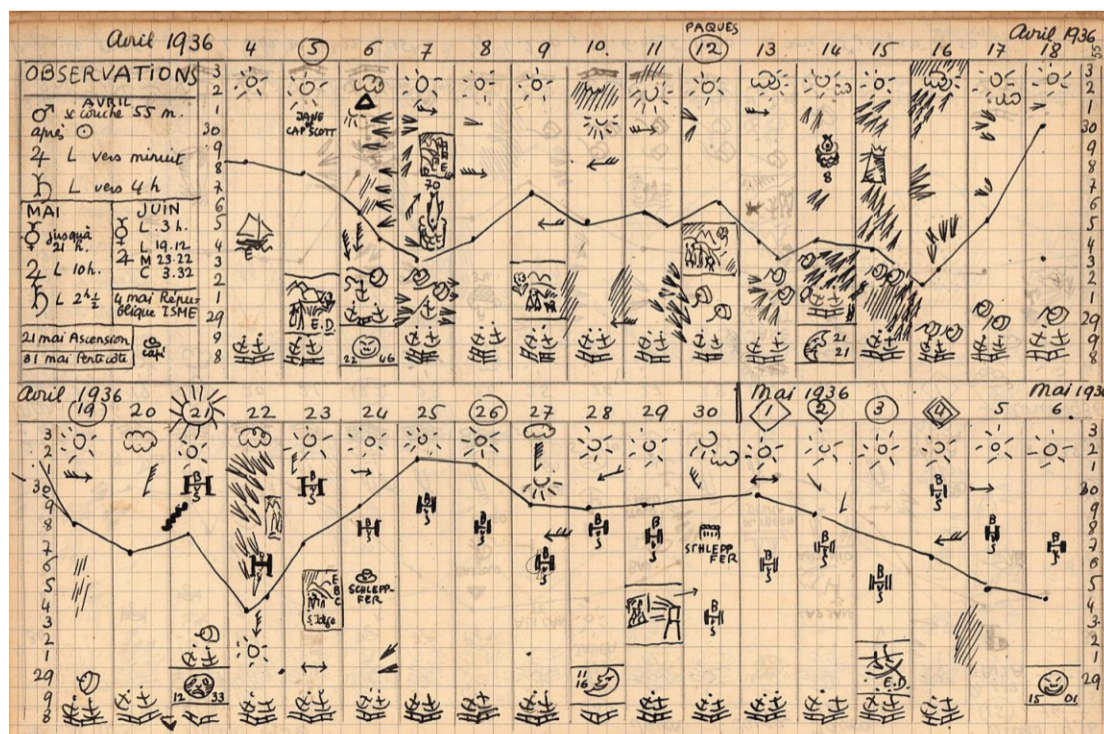 PAQUES
Avril 1936 4 5 6 7 8 9 10. 11 12 13 14 15 16 17 18 Avril 1936
OBSERVATIONS
AVRIL
♂ se couche 55 m.
après ☉
♃ L vers minuit
♄ L vers 4 h
MAI
☿ jusqu'à
21 h.
♃ L 10h.
♄ L 2h½
JUIN
☿ L. 3 h.
♃ L 19.12
M 23.22
C 3.32
4 mai Répu-
blique ISME
21 mai Ascension
31 mai Penticôte
3
2
1
30
9
8
7
6
5
4
3
2
1
29
9
8
JANE
CAP SCOTT
70
8
E.D.
22 46
21
21
55
3
2
1
30
9
8
7
6
5
4
3
2
1
29
9
8
Avril 1936 Mai 1936 Mai 1936
19 20 21 22 23 24 25 26 27 28 29 30 1 2 3 4 5 6
3
2
1
30
9
8
7
6
5
4
3
2
1
29
9
8
B
S
SCHLEPP-
FER
SCHLEPP
FER
E
B
C
E.D.
12 33
11
16
15 01
3
2
1
30
9
8
7
6
5
4
3
2
1
29